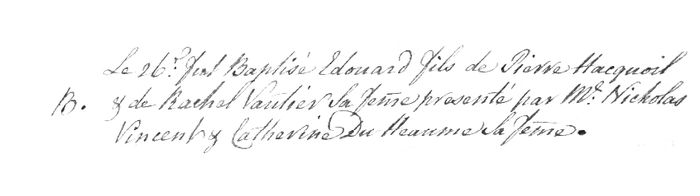 Le 26.e fut Baptisé Edouard fils de Pierre Hacquoil
B. & de Rachel Vautier sa Feme presenté par Mr. Nicholas
Vincent & Catherine Du Heaume sa Feme.